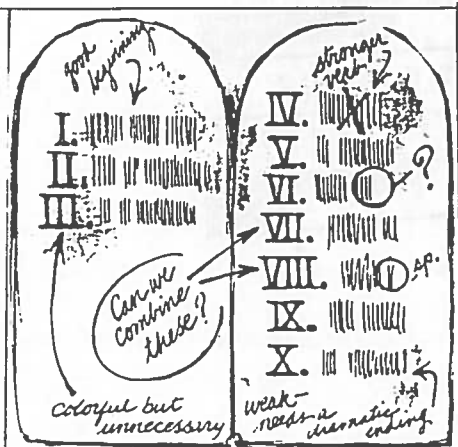 good
beginning
I.
II.
III.
Can we
combine
these?
colorful but
unnecessary
stronger
verb
IV.
V.
VI. ?
VII.
VIII. sp.
IX.
X.
weak-
needs a
dramatic
ending